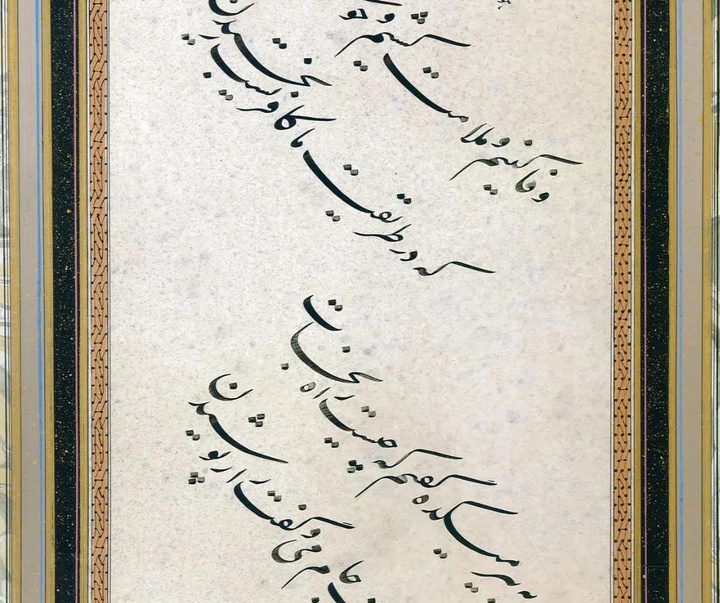 وفا کنیم و ملامت کشیم و
که در طریقت ما کافریست رنجیدن
به پیر میکده گفتم که چیست راه نجات
جام می و گفت راز پوشیدن